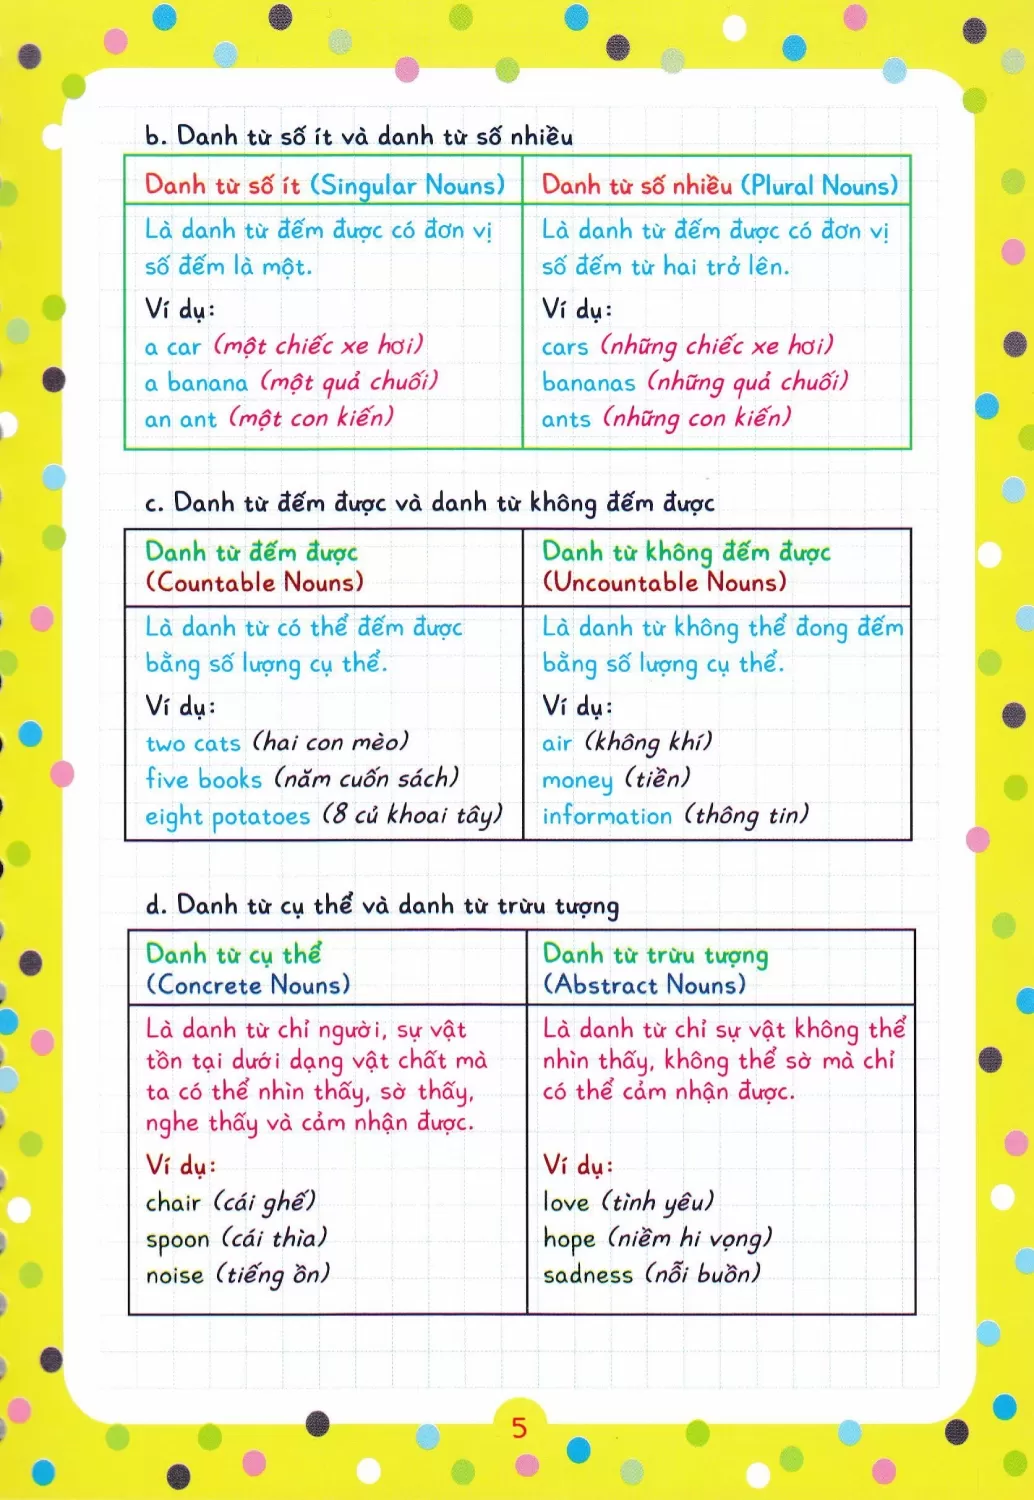 b. Danh từ số ít và danh từ số nhiều
Danh từ số ít (Singular Nouns)
Là danh từ đếm được có đơn vị
số đếm là một.
Ví dụ:
a car (một chiếc xe hơi)
a banana (một quả chuối)
an ant (một con kiến)
Danh từ số nhiều (Plural Nouns)
Là danh từ đếm được có đơn vị
số đếm từ hai trở lên.
Ví dụ:
cars (những chiếc xe hơi)
bananas (những quả chuối)
ants (những con kiến)
c. Danh từ đếm được và danh từ không đếm được
Danh từ đếm được
(Countable Nouns)
Là danh từ có thể đếm được
bằng số lượng cụ thể.
Ví dụ:
two cats (hai con mèo)
five books (năm cuốn sách)
eight potatoes (8 củ khoai tây)
Danh từ không đếm được
(Uncountable Nouns)
Là danh từ không thể đong đếm
bằng số lượng cụ thể.
Ví dụ:
air (không khí)
money (tiền)
information (thông tin)
d. Danh từ cụ thể và danh từ trừu tượng
Danh từ cụ thể
(Concrete Nouns)
Là danh từ chỉ người, sự vật
tồn tại dưới dạng vật chất mà
ta có thể nhìn thấy, sờ thấy,
nghe thấy và cảm nhận được.
Ví dụ:
chair (cái ghế)
spoon (cái thìa)
noise (tiếng ồn)
Danh từ trừu tượng
(Abstract Nouns)
Là danh từ chỉ sự vật không thể
nhìn thấy, không thể sờ mà chỉ
có thể cảm nhận được.
Ví dụ:
love (tình yêu)
hope (niềm hi vọng)
sadness (nỗi buồn)
5